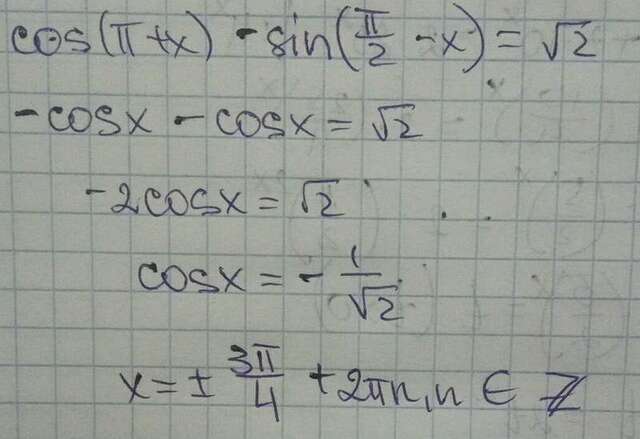 cos(π+x) - sin(π/2 - x) = √2
-cosx - cosx = √2
-2cosx = √2
cosx = - 1/√2
x = ± 3π/4 + 2πn, n ∈ Z